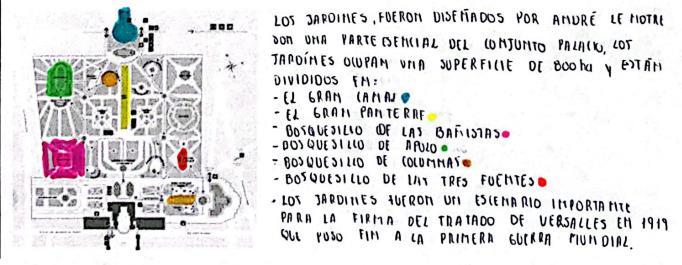 LOS JARDINES, FUERON DISEÑADOS POR ANDRÉ LE NOTRE
SON UNA PARTE ESENCIAL DEL CONJUNTO PALACIO, LOS
JARDINES OCUPAN UNA SUPERFICIE DE 800ha Y ESTÁN
DIVIDIDOS EN:
- EL GRAN CANAL
- EL GRAN PANTERRE
- BOSQUESILLO DE LAS BAÑISTAS
- BOSQUESILLO DE APOLO
- BOSQUESILLO DE COLUMNAS
- BOSQUESILLO DE LAS TRES FUENTES
- LOS JARDINES FUERON UN ESCENARIO IMPORTANTE
PARA LA FIRMA DEL TRATADO DE VERSALLES EN 1919
QUE PUSO FIN A LA PRIMERA GUERRA MUNDIAL.